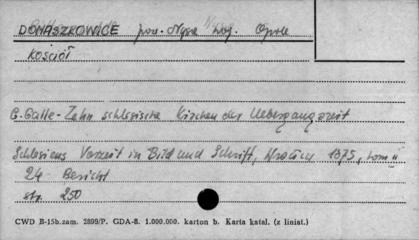 DOMASZKOWICE pow. Nysa woj. Opole
KOŚCIÓŁ
G. Galle - Zehn schlesische Kirchen der Uebergangszeit
Schlesiens Vorzeit in Bild und Schrift, Wrocław 1875, tom II
24 Bericht
str. 250
CWD B-15b.zam. 2899/P. GDA-8. 1.000.000. karton b. Karta katal. (z liniat.)